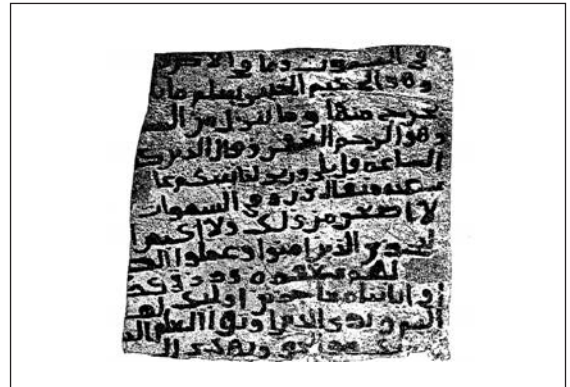 في السموت وما في الا
وهو الحكيم الخبير يعلم ما
يخرج منها وما ينزل من الس
وهو الرحيم الغفور وقال الذين ك
الساعه قل بلى وربي لتاتينكم عا
عنه مثقال ذره في السموات
لا اصغر من ذلك ولا اكبر ا
ليجزي الذين امنوا وعملوا الص
لهم مغفره ورزق كر
في اياتنا معاجزين اولئك لهم
اليم ويرى الذين اوتوا العلم الذ
هو الحق ويهدي الى